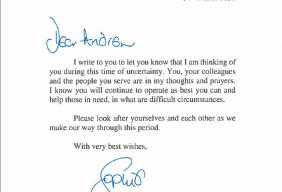 Dear Andrew
I write to you to let you know that I am thinking of
you during this time of uncertainty. You, your colleagues
and the people you serve are in my thoughts and prayers.
I know you will continue to operate as best you can and
help those in need, in what are difficult circumstances.
Please look after yourselves and each other as we
make our way through this period.
With very best wishes,
Sophie